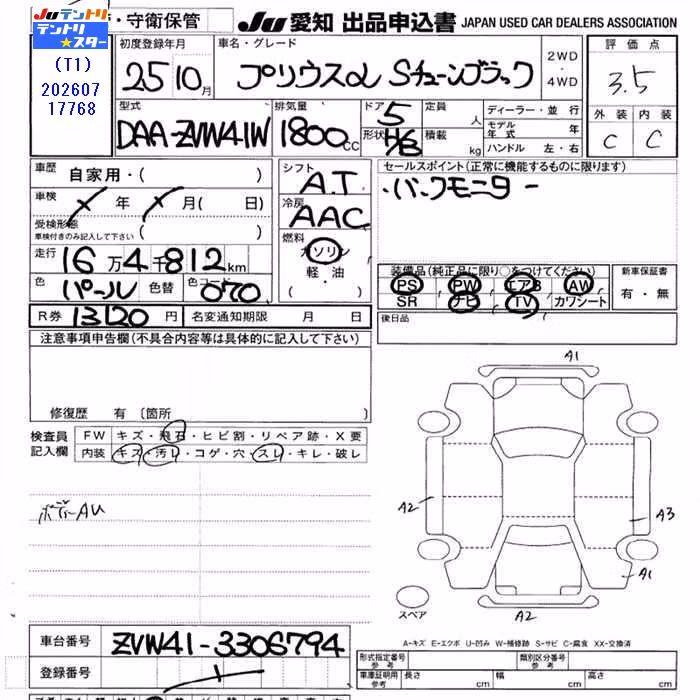 Ju テントリ
テントリ★スター
(T1)
202607
17768
・守衛保管
Ju 愛知 出品申込書 JAPAN USED CAR DEALERS ASSOCIATION
初度登録年月
25 10月
車名・グレード
プリウスα Sチューンブラック
2WD
・
4WD
評価点
3.5
外装 内装
C C
型式
DAA-ZVW41W
排気量
1800 CC
ドア 5
形状 H/B
定員 人
積載 kg
ディーラー・並行
モデル年式 年
ハンドル 左・右
車歴 自家用・( )
車検 年 月( 日)
受検形態
車検付きのみ記入して下さい ( )
走行 16万4千812km
色 パール 色替 色コード 070
R券 13120円 名変通知期限 月 日
シフト
A.T
冷房
AAC
燃料
ガソリン
軽・油
( ・ )
セールスポイント(正常に機能するものに限ります)
・バックモニター
装備品(純正品に限り○をつけてください)
PS PW エアB AW
SR ナビ TV カワシート
新車保証書
有・無
後日品
注意事項申告欄(不具合内容等は具体的に記入して下さい)
修復歴 有〔箇所 〕
検査員記入欄
FW キズ・飛石・ヒビ割・リペア跡・X要
内装 キズ・汚レ・コゲ・穴・スレ・キレ・破レ
ボデーAU
A1
A2
A3
A1
A2
スペア
A-キズ E-エクボ U-凹み W-補修跡 S-サビ C-腐食 XX-交換済
車台番号 ZVW41-3306794
登録番号
形式指定番号 参考
類別区分番号 参考
車庫証明用 参考 長さ cm 幅 cm 高さ cm